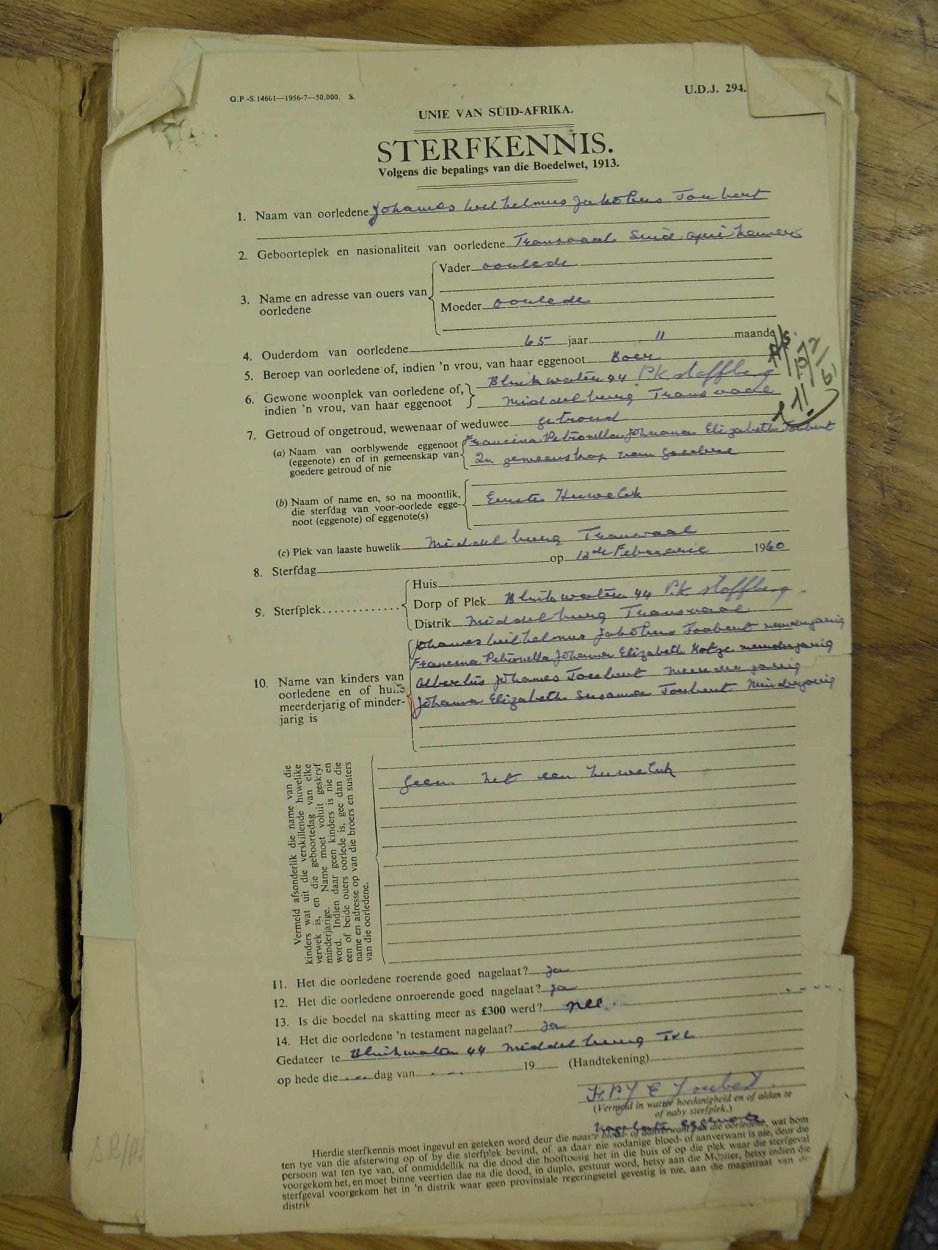 G.P.-S.14661—1956-7—50,000. S.
U.D.J. 294.
UNIE VAN SUID-AFRIKA.
STERFKENNIS.
Volgens die bepalings van die Boedelwet, 1913.
1. Naam van oorledene Johannes Wilhelmus Jakobus Joubert
2. Geboorteplek en nasionaliteit van oorledene Transvaal Suid Afrikaner
3. Name en adresse van ouers van oorledene
Vader oorlede
Moeder oorlede
4. Ouderdom van oorledene 65 jaar 11 maande
5. Beroep van oorledene of, indien 'n vrou, van haar eggenoot Boer
6. Gewone woonplek van oorledene of, indien 'n vrou, van haar eggenoot
Blinkwater 44 PK Stoffberg
Middelburg Transvaal
7. Getroud of ongetroud, wewenaar of weduwee getroud
(a) Naam van oorblywende eggenoot (eggenote) en of in gemeenskap van goedere getroud of nie
Francina Petronella Johanna Elizabeth Joubert
In gemeenskap van goedere
(b) Naam of name en, so na moontlik, die sterfdag van voor-oorlede eggenoot (eggenote) of eggenote(s)
Eerste Huwelik
(c) Plek van laaste huwelik Middelburg Transvaal
8. Sterfdag op Februarie 1960
9. Sterfplek
Huis
Dorp of Plek Blinkwater 44 P.K Stoffberg.
Distrik Middelburg Transvaal
10. Name van kinders van oorledene en of hulle meerderjarig of minderjarig is
Johannes Wilhelmus Jakobus Joubert
Francina Petronella Johanna Elizabeth Kotze
Albertus Johannes Joubert
Johanna Elizabeth Susanna Joubert Minderjarig
Vermeld afsonderlik die name van die
kinders wat uit die verskillende huwelike
verwek is, en die geboortedag van elke
minderjarige. Name moet voluit geskryf
word. Indien daar geen kinders is nie en
een of beide ouers oorlede is, gee dan die
name en adresse op van die broers en susters
van die oorledene.
een huwelik
11. Het die oorledene roerende goed nagelaat? Ja
12. Het die oorledene onroerende goed nagelaat? Ja
13. Is die boedel na skatting meer as £300 werd? nee
14. Het die oorledene 'n testament nagelaat? Ja
Gedateer te Blinkwater 44 Middelburg Tvl
op hede die dag van 19 (Handtekening)
F.P.J E Joubert.
(Vermeld in watter hoedanigheid en of aldan te
of naby sterfplek.)
Nagelate eggenote
Hierdie sterfkennis moet ingevul en geteken word deur die naaste bloed- of aanverwant van die oorledene, wat hom
ten tye van die afsterwing op of by die sterfplek bevind, of, as daar nie sodanige bloed- of aanverwant is nie, deur die
persoon wat ten tye van, of onmiddelik na die dood die hooftoesig het in die huis of op die plek waar die sterfgeval
voorgekom het, en moet binne veertien dae na die dood, in duplo, gestuur word, hetsy aan die Meester, hetsy indien die
sterfgeval voorgekom het in 'n distrik waar geen provinsiale regeringsetel gevestig is nie, aan die magistraat van die
distrik